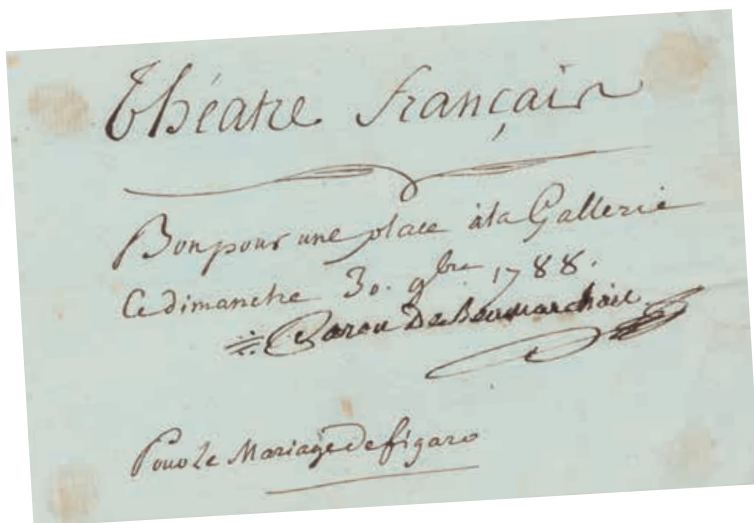 Théatre français
Bon pour une place à la Gallerie
Ce dimanche 30. 9bre 1788.
Caron De Beaumarchais
Pour Le Mariage De figaro